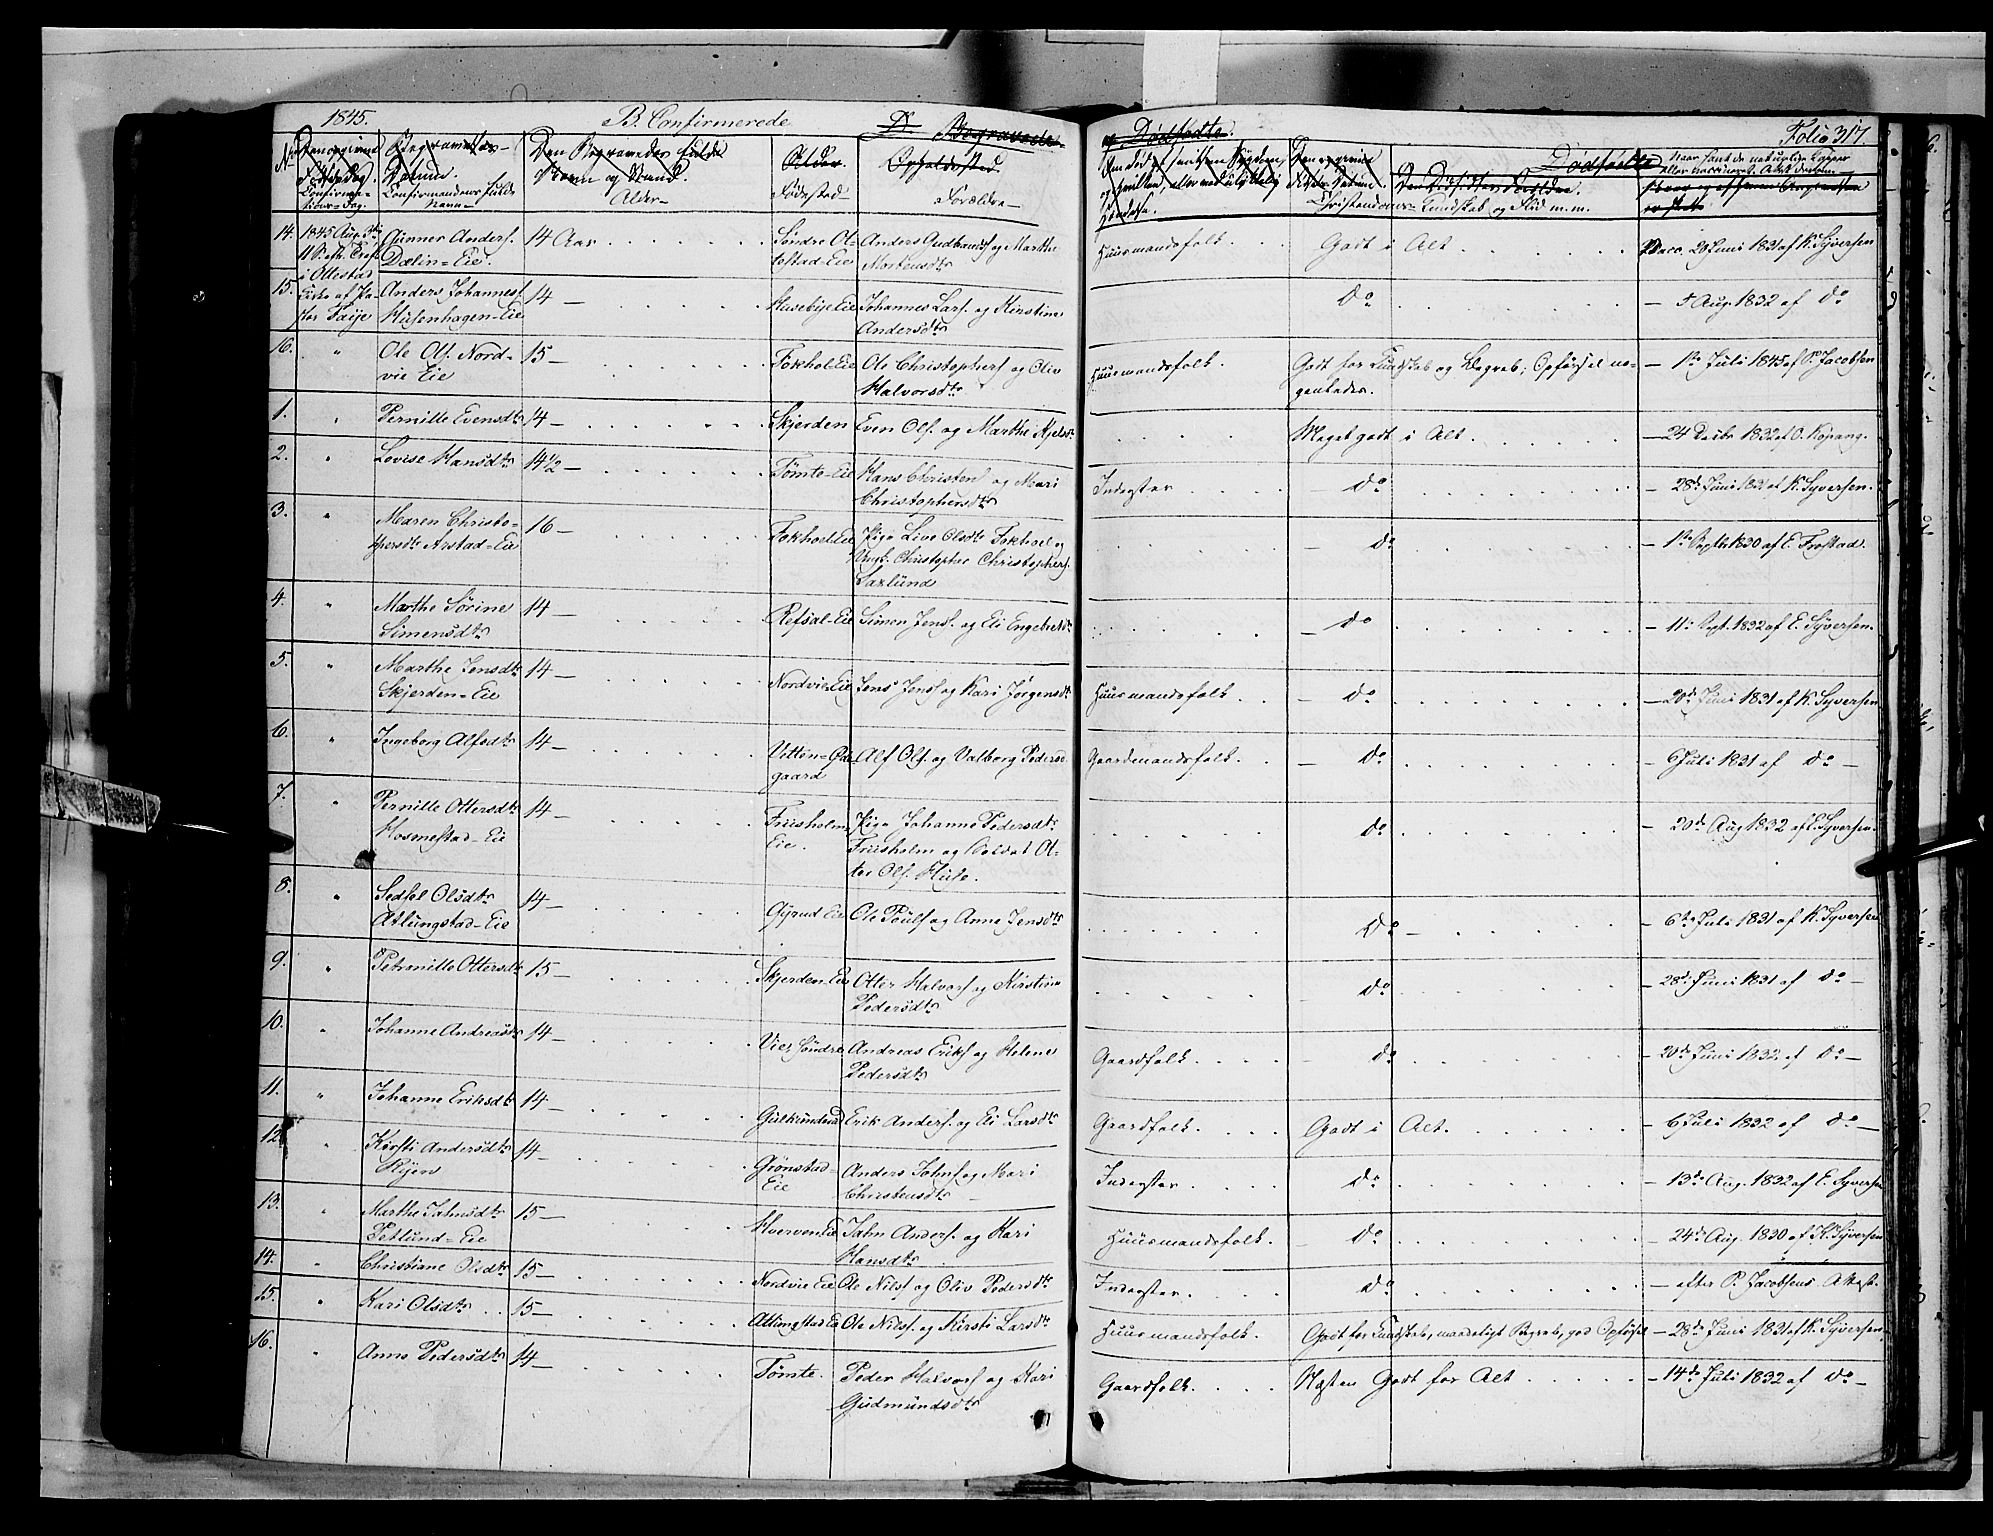 1845. B. Confirmerede Begravede
og Dødfødte. Folio 317.
No Confirma-
tions-Dag
Begravelses-
Datum.
Confirmandens fulde
Navn
Den Begravedes fulde
Navn og Stand.
Alder
Alder.
Fødestad
Opholdssted
Forældre
Dødfødte
Christendoms-Kundskab og Flid m. m.
14. 1845 Aug. Gunner Anders.
Dælin-Eie. 14 Aar Søndre Ot-
testad-Eie Anders Gudbrands. og Marthe
Mortensdtr Huusmandsfolk Godt i Alt Vacc. 20 Juni 1831 af K. Syversen
i Ottestad
15. Anders Johannes.
Husenhagen-Eie 14 — Husebye Eie Johannes Lars. og Kirstine
Andersdtr Do — 5 Aug. 1832 af Do
16. " Ole Ols. Nord-
vie Eie 15 — Fokhol-Eie Ole Christophers. og Oliv
Halvorsdtr Huusmandsfolk. Godt for Kundskab og Begreb; Opførsel no-
genledes. — 1ste Juli 1845 af P. Jacobsen
1. " Pernille Evensdtr 14 — Skjerden Even Ols. og Marthe Meget godt i Alt. — 24 Decbr. 1832 af O. Kopang.
2. " Lovise Hansdtr 14½ — Tømte-Eie Hans Christen. og Mari
Christophersdtr Inderster — Do — 28de Juni 1831 af K. Syversen.
3. " Maren Christo-
phersdtr Arstad-Eie 16 — Fokhol-Eie Pige Live Olsdtr Fokhol og
Ungk. Christopher Christophers.
Saxlund — Do — 1ste Septbr 1830 af E. Frostad.
4. " Marthe Sørine
Simensdtr 14 — Refsal-Eie Simen Jens. og Eli Engebretsdtr — Do — 11te Sept. 1832 af E. Syversen.
5. " Marthe Jensdtr
Skjerden-Eie 14 — Nordvie Eie Jens Jens. og Kari Jørgensdtr Huusmandsfolk. — Do — 20de Juni 1831 af K. Syversen
6. " Ingeborg Alfsdtr 14 — Vitten-Øde-
gaard Alf Ols. og Valborg Pedersd. Gaardmandsfolk. — Do — 6 Juli 1831 af Do —
7. " Pernille Ottersdtr
Hosmestad-Eie 14 — Friisholm-
Eie. Pige Johanne Pedersdtr
Friisholm og Soldat Ot-
ter Ols. Huse. Do — 20de Aug 1832 af E. Syversen.
8. " Sedsel Olsdtr
Atlungstad-Eie 14 — Gyrud Eie Ole Pouls. og Anne Jensdtr Do — 6te Juli 1831 af K. Syversen
9. " Petronille Ottersdtr 15 — Skjerden-Eie Otter Halvors. og Kirstine
Pedersdtr — Do — 28de Juni 1831 af Do —
10. " Johanne Andreasdtr 14 — Vie, Søndre Andreas Eriks. og Helene
Pedersdtr Gaardfolk. — Do — 20de Juni 1832 af Do —
11. " Johanne Eriksdtr 14 — Gulkunderud Erik Anders. og Eli Larsdtr Gaardfolk. Godt i Alt. — 6 Juli 1832 af Do —
12. " Kirsti Andersdtr
Ryen 14 — Grønstad-
Eie Anders Johns. og Mari
Christensdtr Inderster Do — 13de Aug. 1832 af E. Syversen
13. " Marthe Jahnsdtr
Petlund-Eie 15 — Hverven-Eie Jahn Anders. og Kari
Hansdtr Huusmandsfolk. — Do — 24de Aug. 1830 af K. Syversen
14. " Christiane Olsdtr 15 — Nordvie Eie Ole Nils. og Oliv Pedersdtr Inderster. Do — efter P. Jacobsens Attest.
15. " Kari Olsdtr 15 — Ole Nils. og Kirsti Larsdtr Huusmandsfolk. Godt for Kundskab, maadeligt Begreb, god Opførsel — 28de Juni 1831 af K. Syversen
16. " Anne Pedersdtr 14 — Tømte. Peder Halvors. og Kari
Gudmundsdtr Gaardfolk. Næsten Godt for Alt — 14de Juli 1832 af Do —